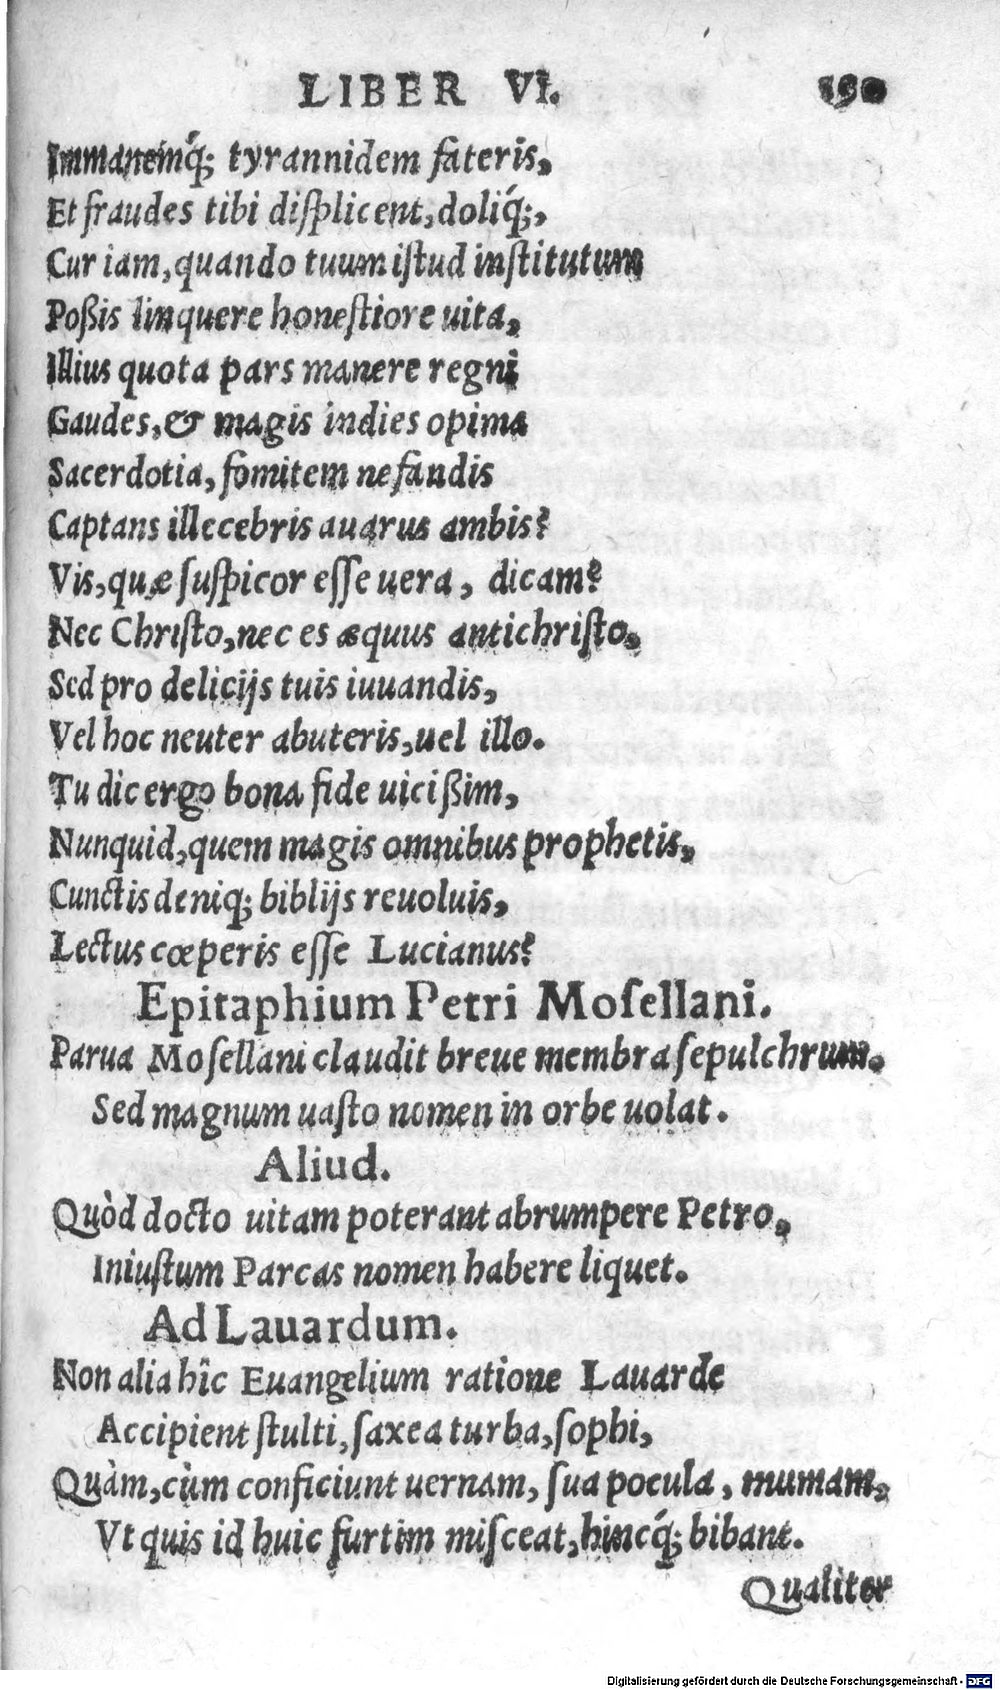 LIBER VI. 190
Immanemq́; tyrannidem fateris,
Et fraudes tibi diſplicent, doliq́;,
Cur iam, quando tuum iſtud inſtitutum
Poßis linquere honeſtiore uita,
Illius quota pars manere regni
Gaudes, & magis indies opima
Sacerdotia, fomitem nefandis
Captans illecebris auarus ambis?
Vis, quæ ſuſpicor eſſe uera, dicam?
Nec Chriſto, nec es æquus antichriſto.
Sed pro delicijs tuis iuuandis,
Vel hoc neuter abuteris, uel illo.
Tu dic ergo bona fide uicißim,
Nunquid, quem magis omnibus prophetis,
Cunctis deniq; biblijs reuoluis,
Lectus cœperis eſſe Lucianus?
Epitaphium Petri Moſellani.
Parua Moſellani claudit breue membra ſepulchrum.
Sed magnum uaſto nomen in orbe uolat.
Aliud.
Quòd docto uitam poterant abrumpere Petro,
Iniuſtum Parcas nomen habere liquet.
Ad Lauardum.
Non alia hîc Euangelium ratione Lauarde
Accipient ſtulti, ſaxea turba, ſophi,
Quàm, cùm conficiunt uernam, ſua pocula, mumam,
Vt quis id huic furtim miſceat, hincq́; bibant.
Qualiter
Digitalisierung gefördert durch die Deutsche Forschungsgemeinschaft - DFG